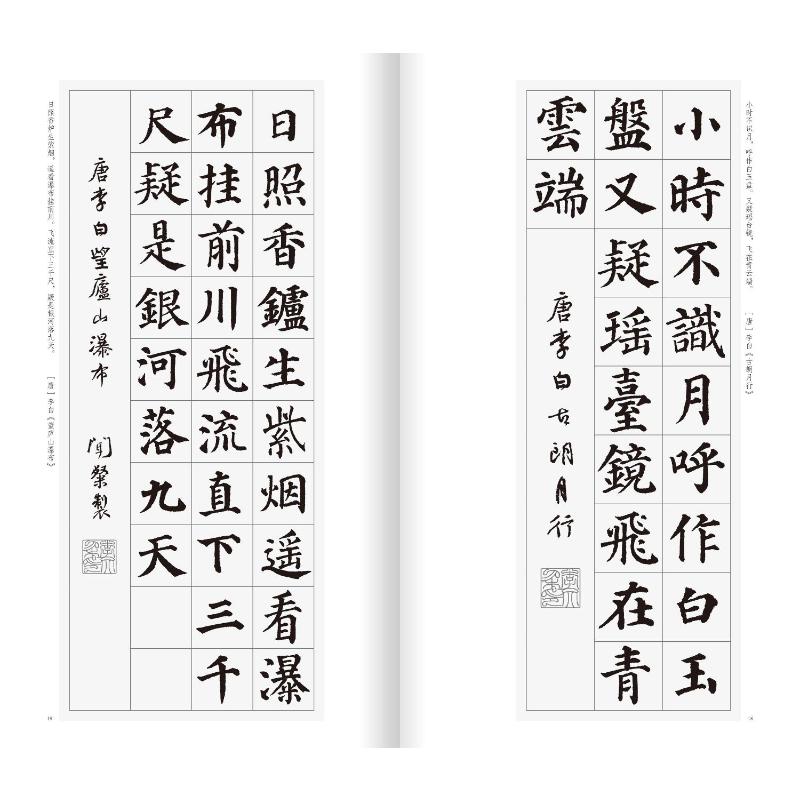 小时不识月，呼作白玉盘。又疑瑶台镜，飞在青云端。 [唐]李白《古朗月行》
小時不識月呼作白玉
盤又疑瑶臺鏡飛在青
雲端
唐李白古朗月行
日照香鑪生紫烟遥看瀑
布挂前川飛流直下三千
尺疑是銀河落九天
唐李白望廬山瀑布 聞榮製
日照香炉生紫烟，遥看瀑布挂前川。飞流直下三千尺，疑是银河落九天。 [唐]李白《望庐山瀑布》